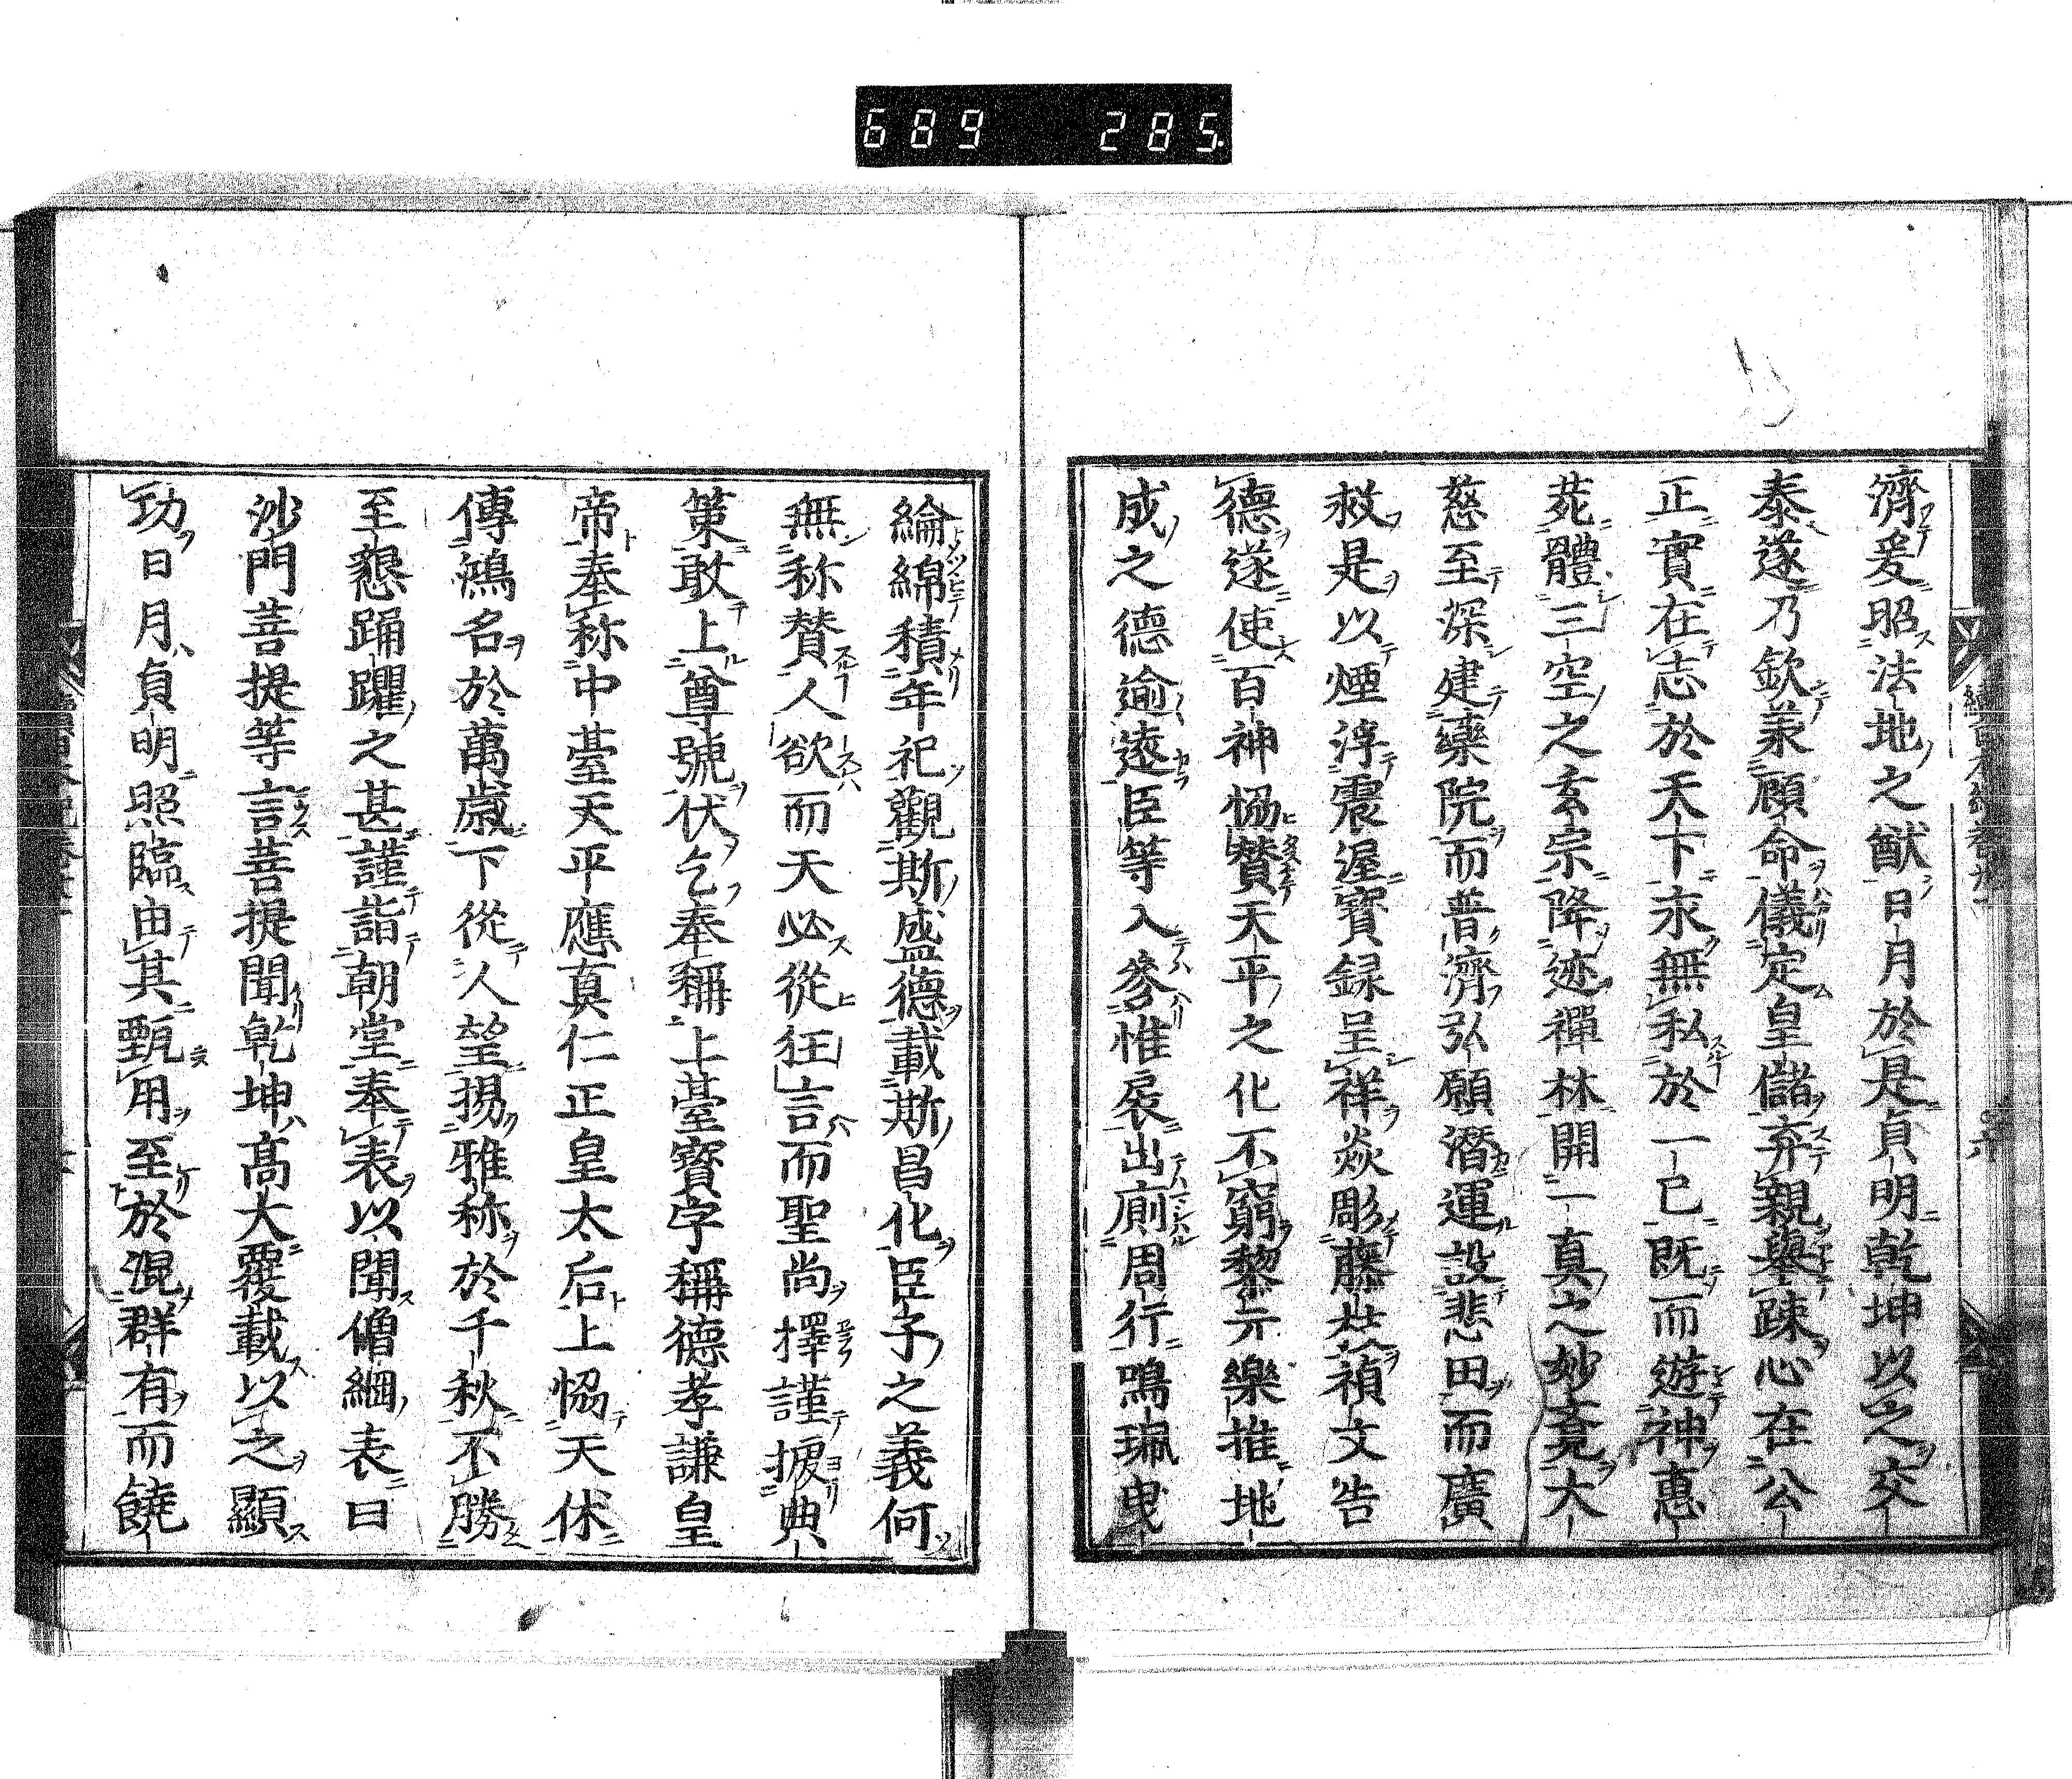 689 285
濟爰昭法地之猷日月於是貞明乾坤以之交
泰遂乃欽羕顧命儀定皇儲弃親舉疎心在公
正實在志於天下永無私於一己既而遊神惠
苑體三空之玄宗降迹禪林開一真之妙竟大
慈至深建藥院而普濟弘願潛運設悲田而廣
救是以煙浮震渥寳録呈祥焱彫藤枝禎文告
德遂使百神恊賛天平之化不窮黎元樂推地
成之德逾遠臣等入叅惟扆出廁周行鳴珮曳
綸綿積年祀觀斯盛德載斯昌化臣子之義何
無称賛人欲而天必從狂言而聖尚擇謹掑典
策敢上尊號伏乞奉稱上臺寶字稱德孝謙皇
帝奉称中臺天平應真仁正皇太后上恊天休
傳鴻名於萬歳下從人望揚雅称於千秋不勝
至懇踊躍之甚謹詣朝堂奉表以聞僧綱表曰
沙門菩提等言菩提聞乾坤高大覆載以之顯
功日月貞明照臨由其甄用至於混群有而饒